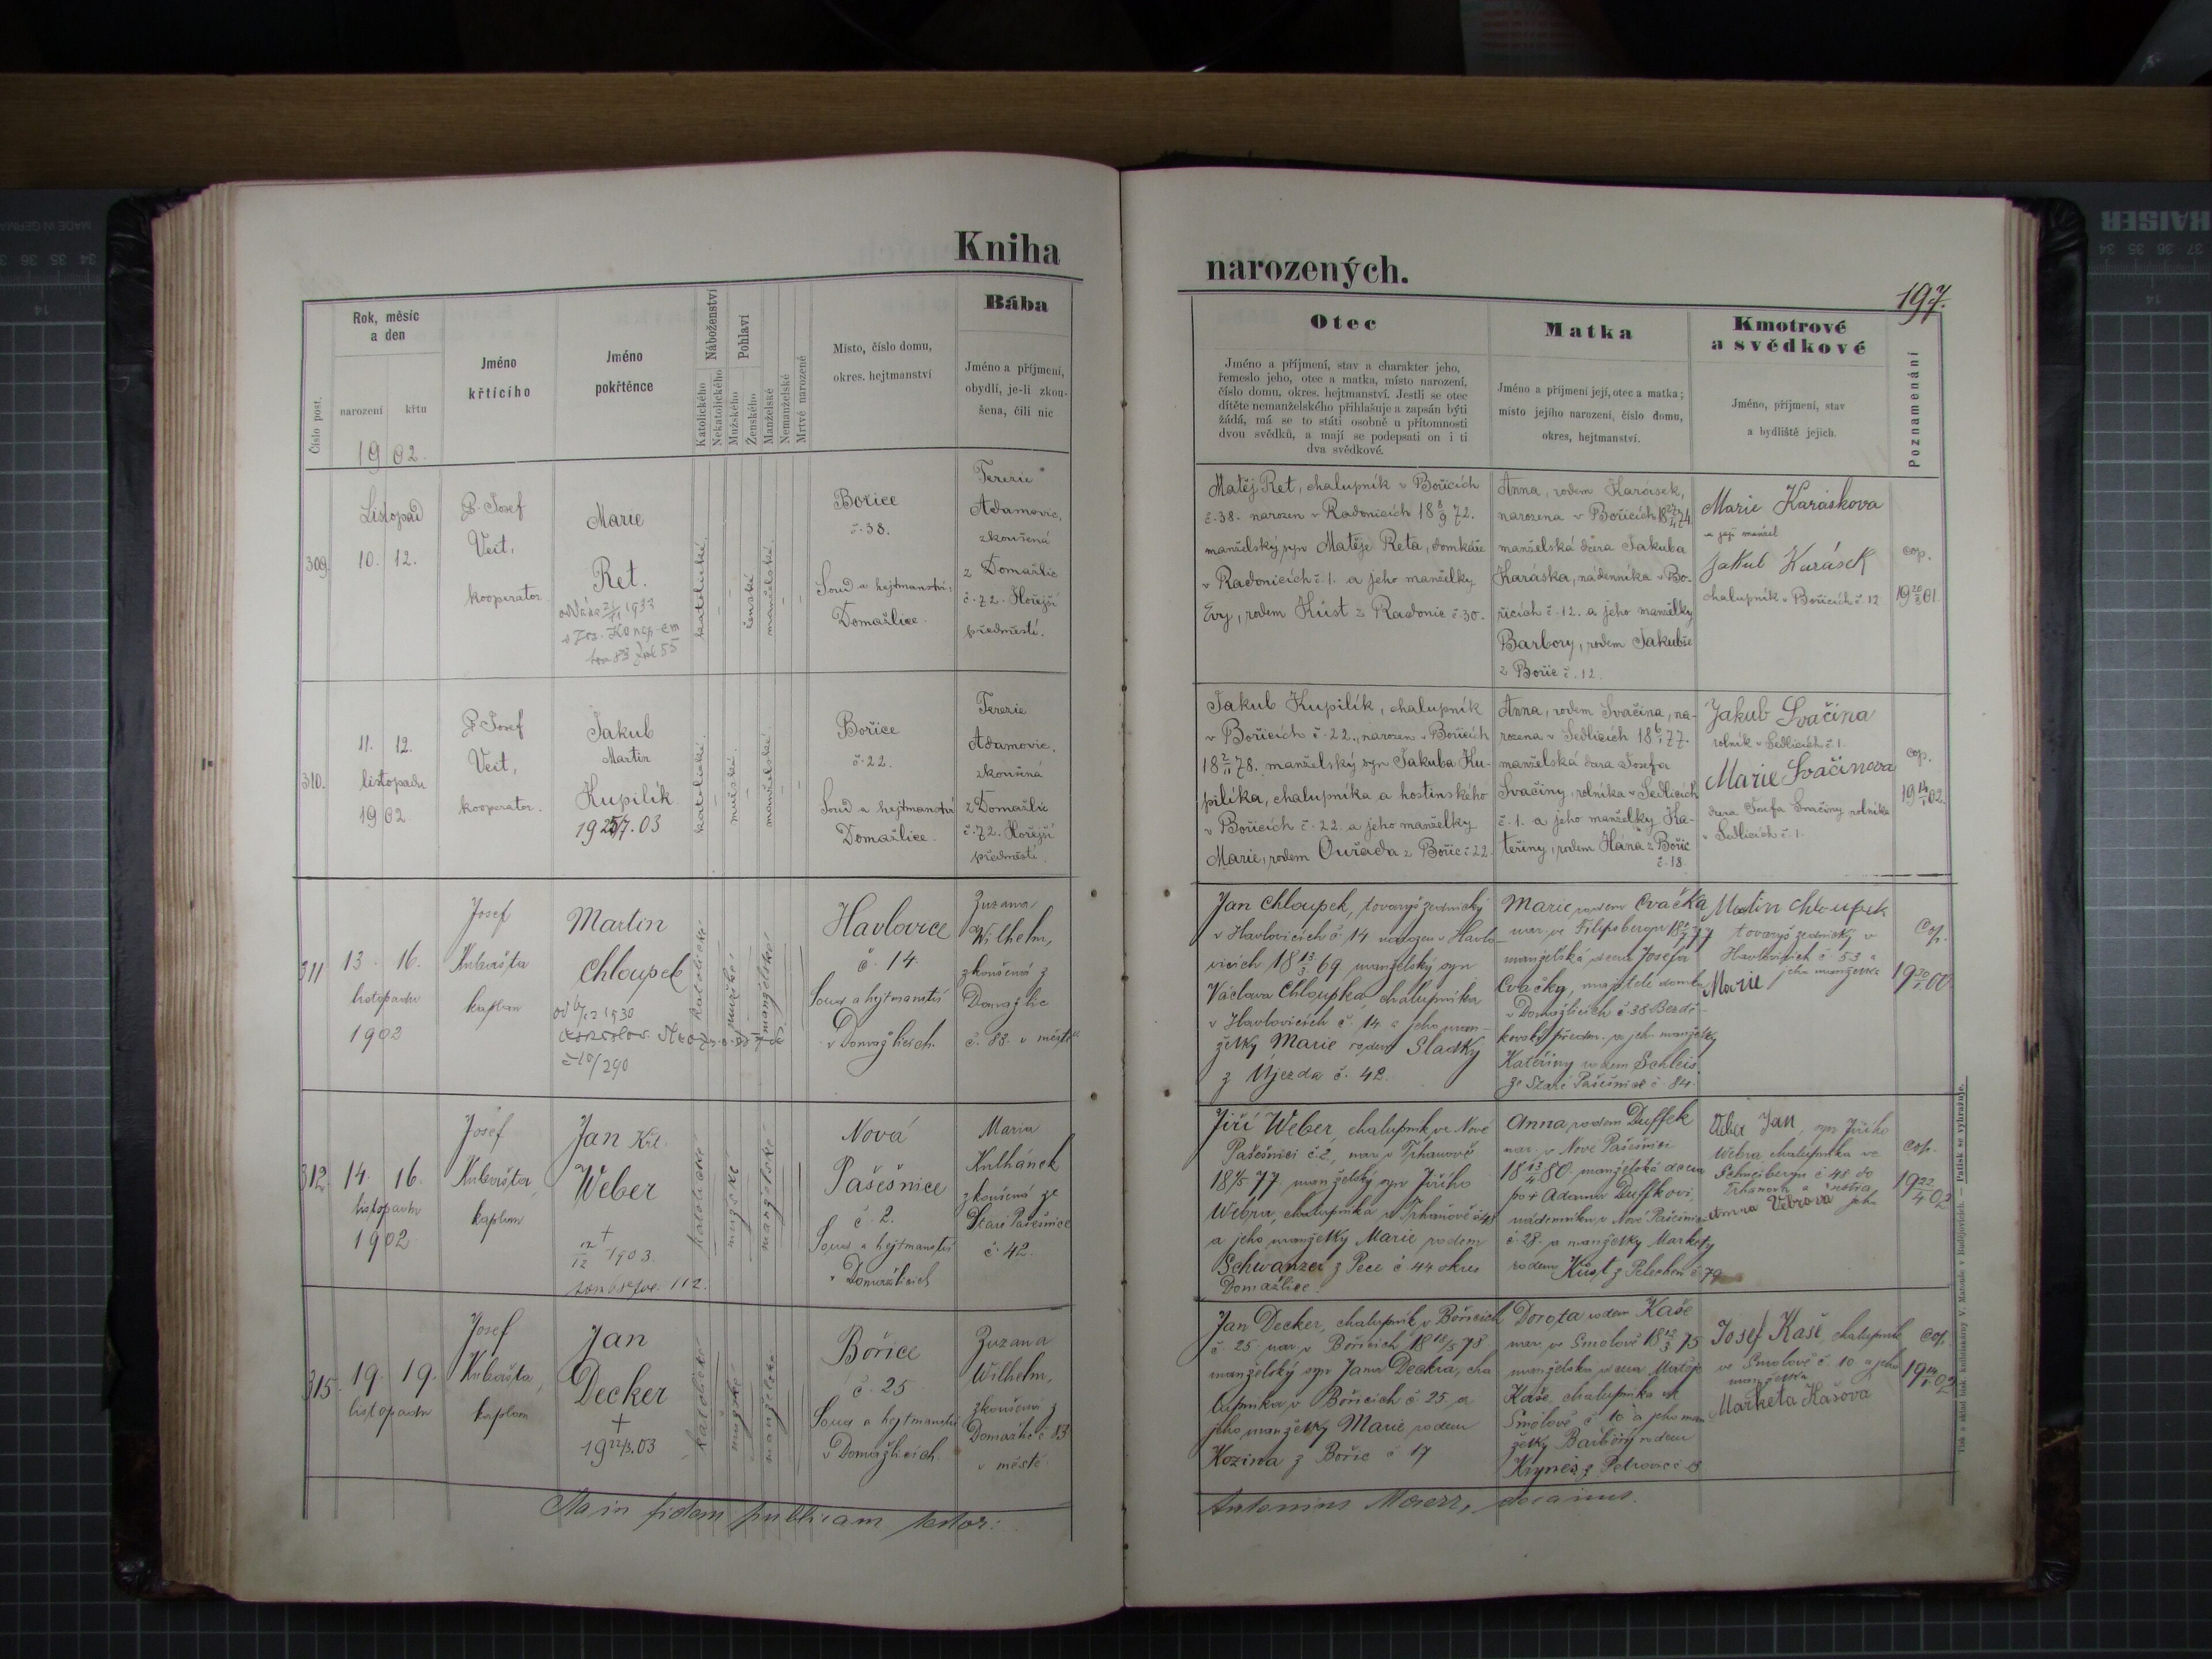 Kniha
narozených.
197.
Číslo post.
Rok, měsíc
a den
narození
křtu
1902.
Jméno
křtícího
Jméno
pokřtěnce
Náboženství
Katolického
Nekatolického
Pohlaví
Mužského
Ženského
Manželské
Nemanželské
Mrtvě narozené
Místo, číslo domu,
okres. hejtmanství
Bába
Jméno a příjmení,
obydlí, je-li zkou-
šena, čili nic
Otec
Jméno a příjmení, stav a charakter jeho,
řemeslo jeho, otec a matka, místo narození,
číslo domu, okres. hejtmanství. Jestli se otec
dítěte nemanželského přihlašuje a zapsán býti
žádá, má se to státi osobně u přítomnosti
dvou svědků, a mají se podepsati on i ti
dva svědkové.
Matka
Jméno a příjmení její, otec a matka;
místo jejího narození, číslo domu,
okres, hejtmanství.
Kmotrové
a svědkové
Jméno, příjmení, stav
a bydliště jejich.
Poznamenání
309.
Listopad
10. 12.
P. Josef
Veit,
kooperator.
Marie
Ret.
katolické.
ženské
manželské.
Bořice
č. 38.
Soud a hejtmanství:
Domažlice.
Terezie
Adamovic,
zkoušená
z Domažlic
č. 72. Hořejší
předměstí.
Matěj Ret, chalupník v Bořicích
č. 38. narozen v Radonicích 18 8/9 72.
manželský syn Matěje Reta, domkáře
v Radonicích č. 1. a jeho manželky
Evy, rodem Küst z Radonic č. 30.
Anna, rodem Karásek,
narozena v Bořicích
manželská dcera Jakuba
Karáska, nádenníka v Bo-
řicích č. 12. a jeho manželky
Barbory, rodem Jakubše
z Bořic č. 12.
Marie Karáskova
a její manžel
Jakub Karásek
chalupník v Bořicích č. 12
cop.
310.
11. 12.
listopadu
1902
P. Josef
Veit,
kooperator.
Jakub
Martin
Kupilík
katolické.
mužské.
manželské.
Bořice
č. 22.
Soud a hejtmanství
Domažlice.
Terezie
Adamovic,
zkoušená
z Domažlic
č. 72. Hořejší
předměstí.
Jakub Kupilík, chalupník
v Bořicích č. 22., narozen v Bořicích
18 2/11 78. manželský syn Jakuba Ku-
pilíka, chalupníka a hostinského
v Bořicích č. 22. a jeho manželky
Marie, rodem Ouřada z Bořic č. 22.
Anna, rodem Svačina, na-
rozena v Sedlicích 18 6/1 77.
manželská dcera Josefa
Svačiny, rolníka v Sedlicích
č. 1. a jeho manželky Ka-
teřiny, rodem Hána z Bořic
č. 18.
Jakub Svačina
rolník v Sedlicích č. 1.
Marie Svačinova
dcera Josefa Svačiny rolníka
v Sedlicích č. 1.
cop.
311
13. 16.
listopadu
1902
Josef
Kubašta
kaplan
Martin
Chloupek
Havlovice
č. 14.
Soud a hejtmanství
v Domažlicích.
Zuzana
Wilhelm,
zkoušená z
Domažlic
č. 83. v městě
Jan Chloupek, tovaryš zednický
v Havlovicích č. 14 narozen v Havlo-
vicích 18 13/3 69 manželský syn
Václava Chloupka, chalupníka
v Havlovicích č. 14 a jeho man-
želky Marie rodem Sladký
z Újezda č. 42.
Marie rodem Cvačka
manželská dcera Josefa
Cvačky, majitele domku
v Domažlicích č. 38 Bezdě-
kovské předm. a jeho manželky
Kateřiny rodem Schleis
ze Staré Pašešnice č. 84.
Martin Chloupek
tovaryš zednický v
Havlovicích č. 53 a
Marie jeho manželka
Cop.
312.
14. 16.
listopadu
1902
Josef
Kubašta,
kaplan
Jan Křt.
Weber
katolické
mužské
manželské
Nová
Pašešnice
č. 2.
Soud a hejtmanství
v Domažlicích
Maria
Kulhánek
zkoušená ze
Staré Pašešnice
č. 42.
Jiří Weber, chalupník ve Nové
Pašešnici č. 2., nar. v Trhanově
manželský syn Jiřího
Webra, chalupníka v Trhanově č. 48
a jeho manželky Marie rodem
Schwanzer z Pece č. 44 okres
Domažlice.
Anna, rodem Duffek
nar. v Nové Pašešnici
manželská dcera
po + Adamu Duffkovi,
nádenníku v Nové Pašešnici
č. 28. a manželky Markety
rodem Küst z Pelechů č. 79
Jan, syn Jiřího
Webra chalupníka ve
cop.
315.
19. 19.
listopadu
Josef
Kubašta,
kaplan
Jan
Decker
+
19 22/3. 03
katolické
mužské
manželské
Bořice
č. 25
Soud a hejtmanství
v Domažlicích.
Zuzana
Wilhelm,
zkoušená z
Domažlic č. 83
v městě
Jan Decker, chalupník v Bořicích
č. 25 nar. v Bořicích
manželský syn Jana Deckra, cha
lupníka v Bořicích č. 25. a
jeho manželky Marie rodem
Kozina z Bořic č 17
Dorota rodem Kaše
nar. ve Smolově
manželská dcera Matěje
Kaše, chalupníka ve
Smolově č 10 a jeho man
želky Barbory rodem
Josef Kaše, chalupník
ve Smolově č. 10 a jeho
manželka
Marketa Kašova
cop.
Ita in fidem publicam testor:
Antonius decanus.
Tisk a sklad tisk. knihtiskárny V. Matouše v Budějovicích. — Patisk se vyhražuje.
MADE IN GERMA
KAISER